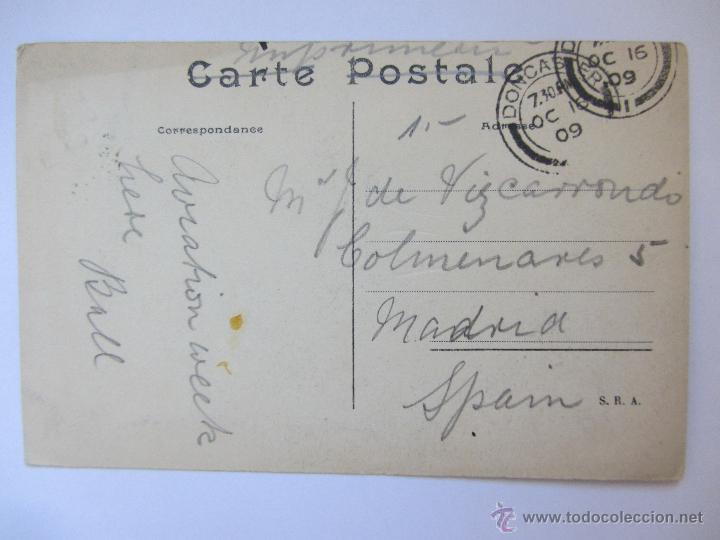 Carte Postale
Correspondance
Adresse
DONCASTER
7.30 PM
OC 16
09
OC 16
09
1
Aviation week
here Ball
de Vizcarrondo
Colmenares 5
Madrid
Spain
S. R. A.
© www.todocoleccion.net